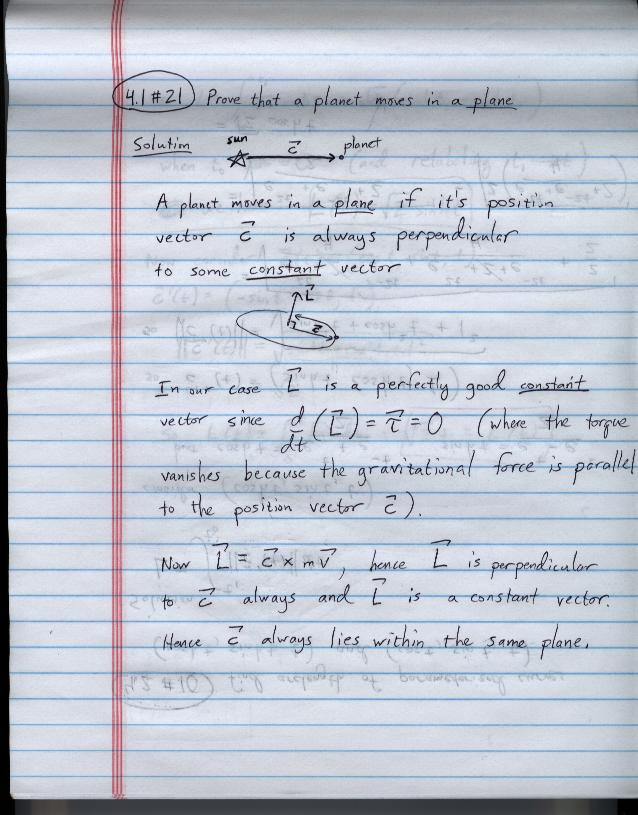 4.1 #21 Prove that a planet moves in a plane
Solution sun c⃗ planet
A planet moves in a plane if it's position
vector c⃗ is always perpendicular
to some constant vector
L⃗
c⃗
In our case L⃗ is a perfectly good constant
vector since d/dt (L⃗) = τ⃗ = 0 (where the torque
vanishes because the gravitational force is parallel
to the position vector c⃗).
Now L⃗ = c⃗ × m v⃗, hence L⃗ is perpendicular
to c⃗ always and L⃗ is a constant vector.
Hence c⃗ always lies within the same plane.